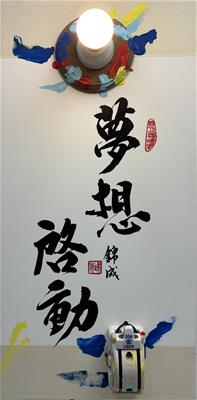 夢想
啓動
錦成